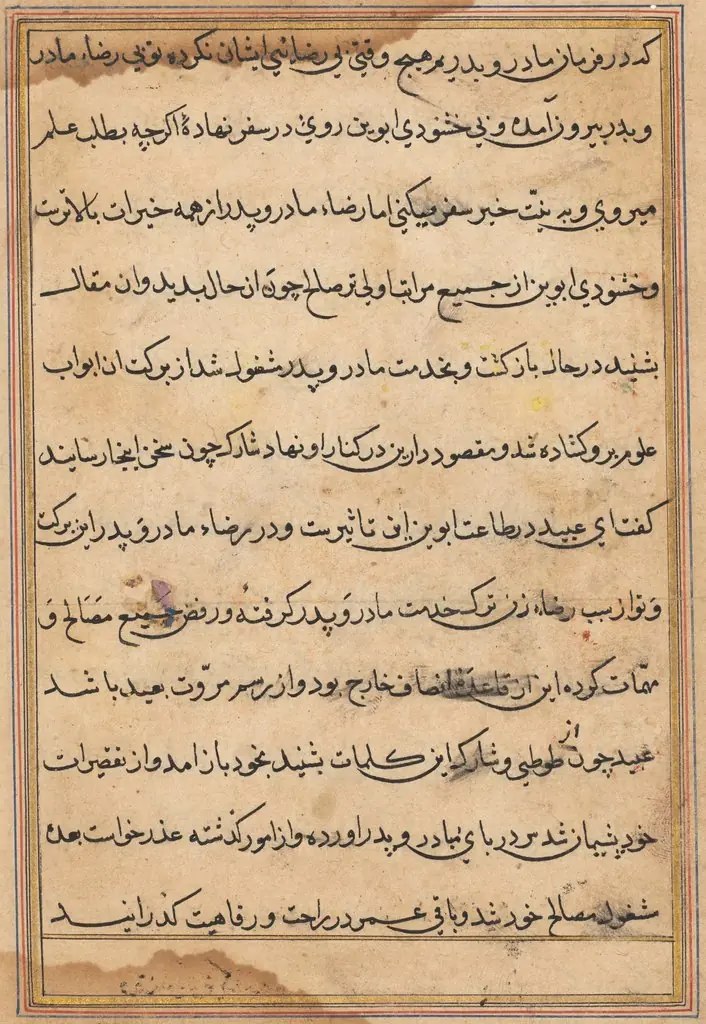 که در فرمان مادر و پدر مرهیچ وقتی بی رضائی ایشان نکرده توبی رضاء مادر
و پدر بیرون آمدهٔ و بی خشنودي ابوین روي در سفر نهادهٔ اکرچه بطلب علم
میروي و به نیّت خیر سفر میکنی اما رضاء مادر و پدر از همه خیرات بالاترست
و خشنودي ابوین از جمیع مراتب اولی تر صالح چون ان حال بدید و ان مقال
بشنید در حال بازکشت و بخدمت مادر و پدر مشغول شد از برکت ان ابواب
علوم برو کشاده شد و مقصود دارین در کنار او نهاد شارک چون سخن اینجا رسانید
کفت اي عبید در طاعت ابوین این تاثیرست و در رضاء مادر و پدر این برکت
و تو از سبب رضاء زن ترک خدمت مادر و پدر کرفتهٔ و رفض جمیع مصالح و
مهمّات کرده این از قاعدهٔ انصاف خارج بود و از رسم مروّت بعید باشد
عبید چون از طوطی و شارک این کلمات بشنید بخود باز امد و از تقصیرات
خود پشیمان شد سر در پاي مادر و پدر اورده و از امور کذشته عذر خواست بعده
مشغول مصالح خود شد و باقی عمر در راحت و رفاهیت کذرانید